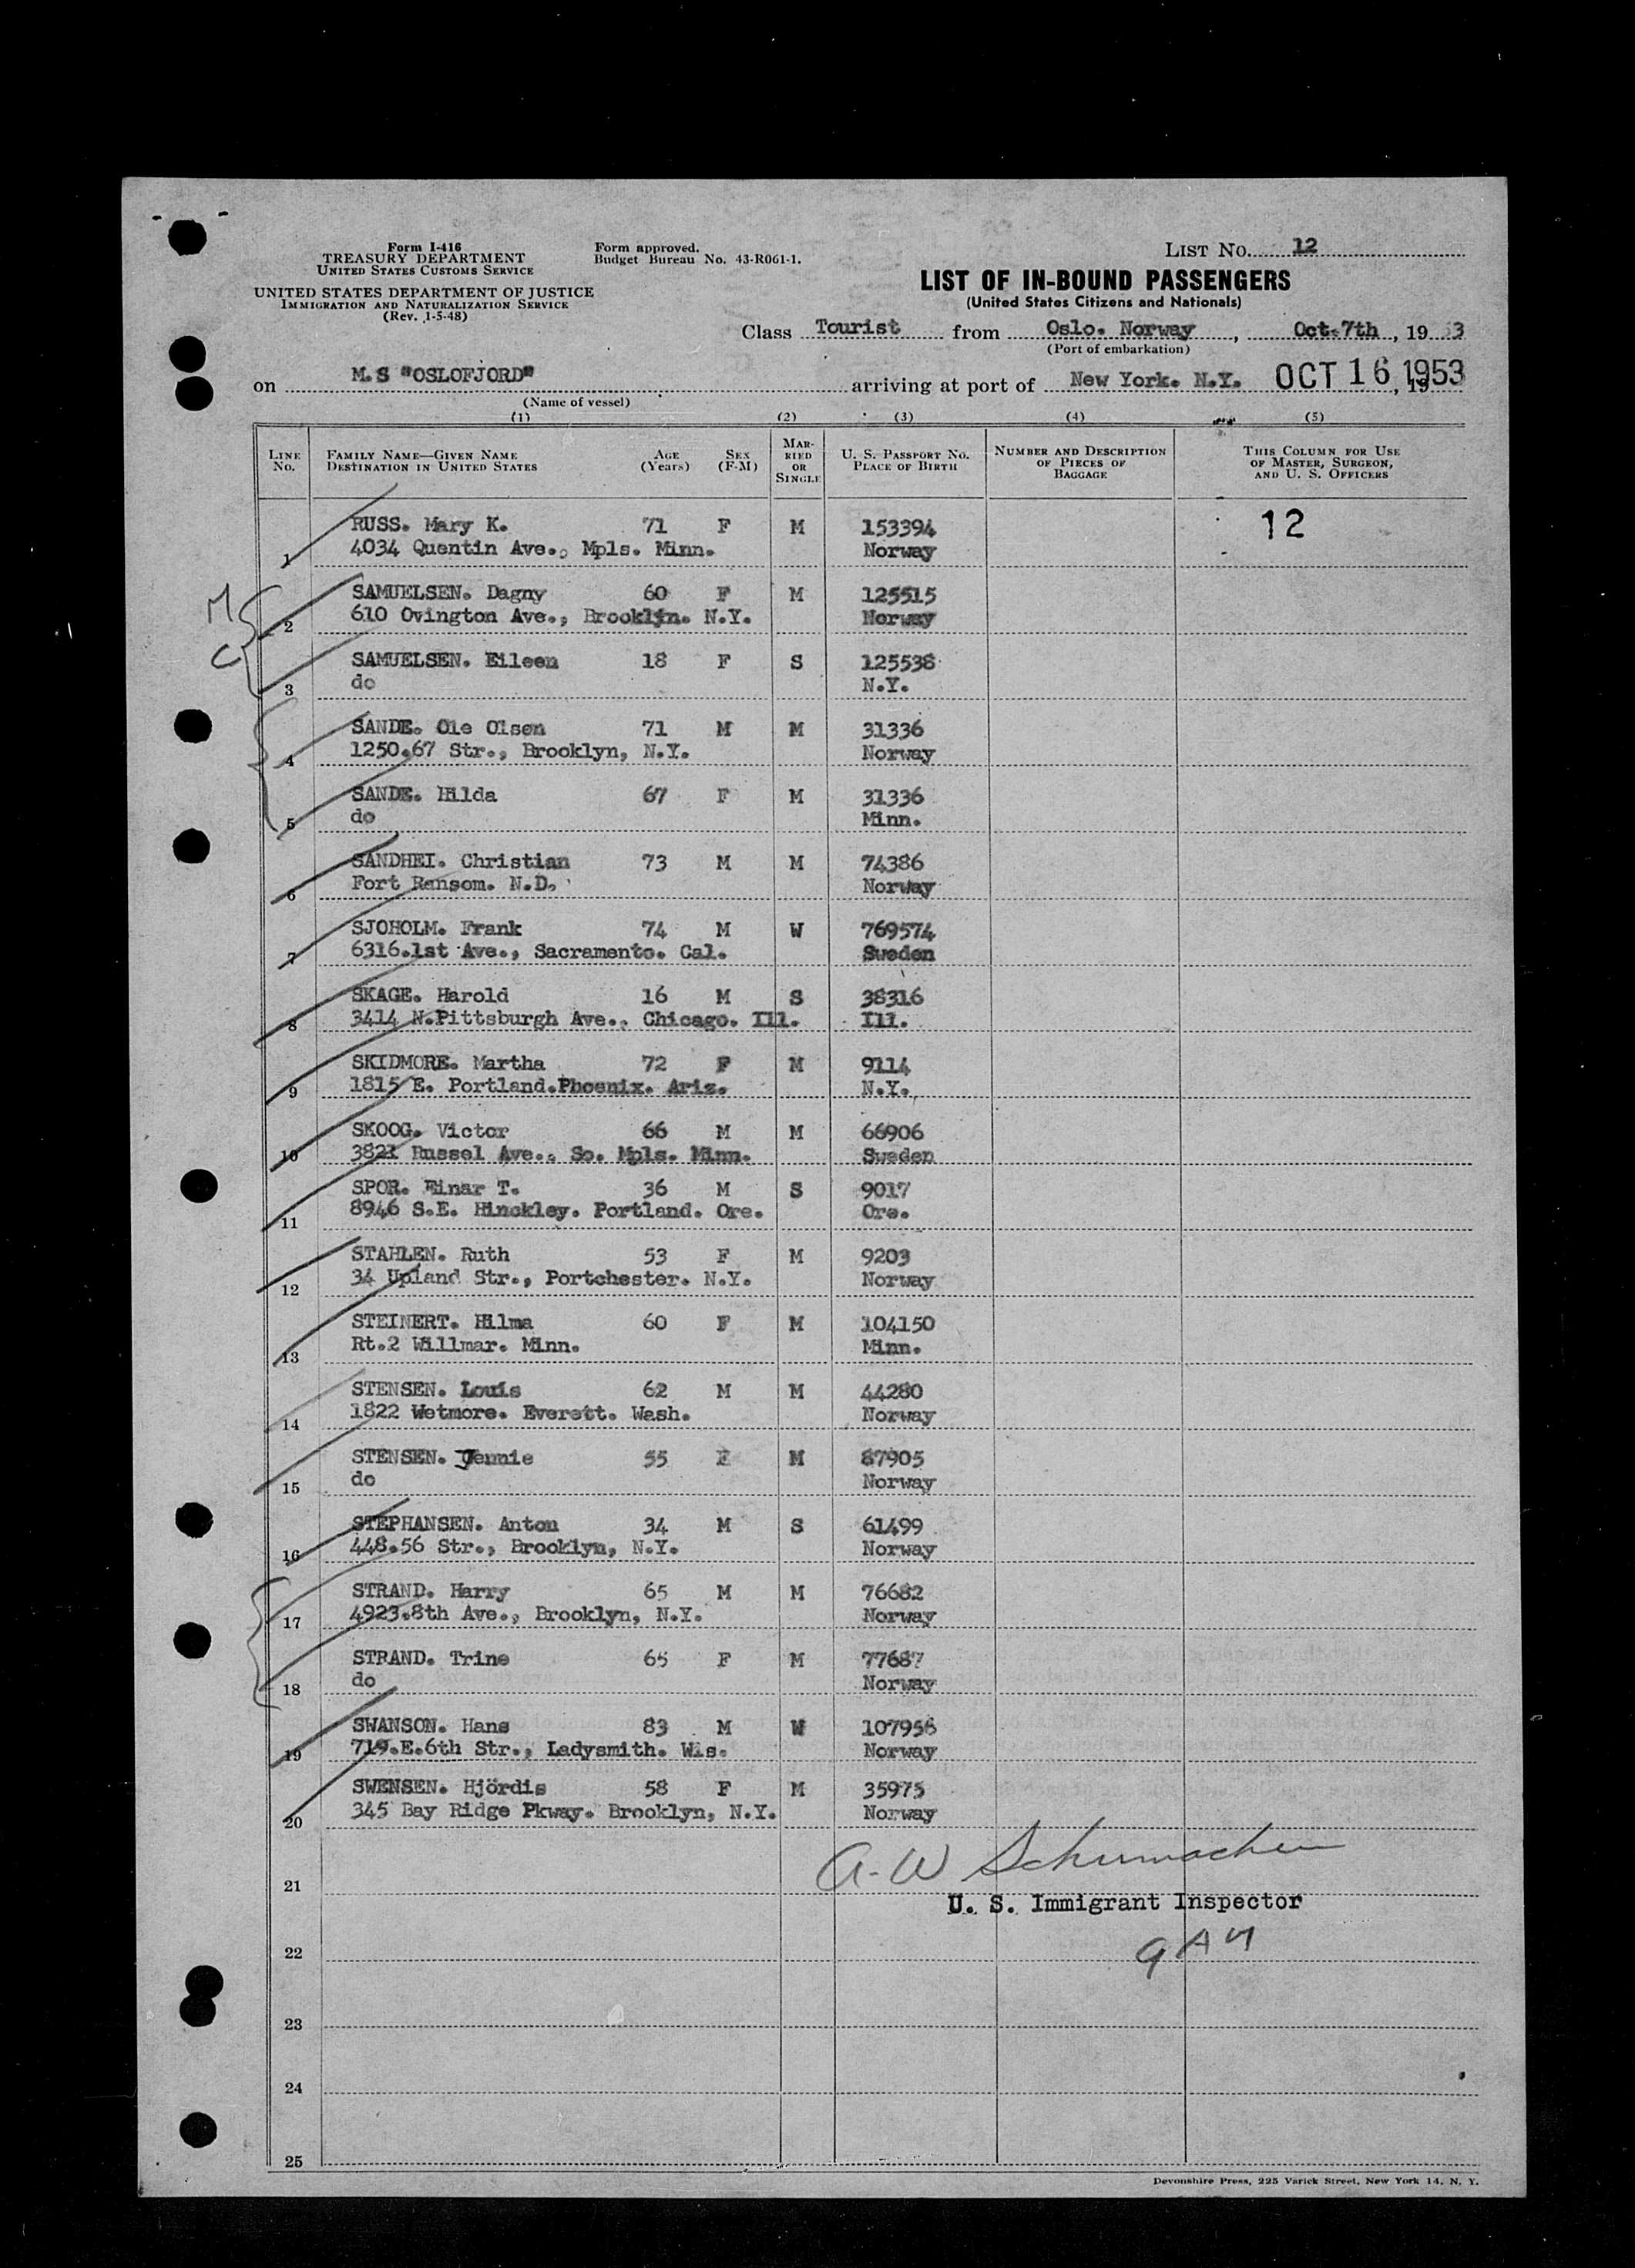 Form I-416
TREASURY DEPARTMENT
UNITED STATES CUSTOMS SERVICE
UNITED STATES DEPARTMENT OF JUSTICE
IMMIGRATION AND NATURALIZATION SERVICE
(Rev. 1-5-48)
Form approved.
Budget Bureau No. 43-R061-1.
LIST No. 12
LIST OF IN-BOUND PASSENGERS
(United States Citizens and Nationals)
Class Tourist from Oslo. Norway, Oct. 7th, 19 53
(Port of embarkation)
on M.S "OSLOFJORD" arriving at port of New York. N.Y. OCT 16 1953, 19
(Name of vessel)
(1) (2) (3) (4) (5)
LINE No. FAMILY NAME—GIVEN NAME DESTINATION IN UNITED STATES AGE (Years) SEX (F-M) MARRIED OR SINGLE U. S. PASSPORT No. PLACE OF BIRTH NUMBER AND DESCRIPTION OF PIECES OF BAGGAGE THIS COLUMN FOR USE OF MASTER, SURGEON, AND U. S. OFFICERS
RUSS. Mary K. 71 F M 153394 12
1 4034 Quentin Ave., Mpls. Minn. Norway
M SAMUELSEN. Dagny 60 F M 125515
2 610 Ovington Ave., Brooklyn. N.Y. Norway
C SAMUELSEN. Eileen 18 F S 125538
3 do N.Y.
SANDE. Ole Olsen 71 M M 31336
4 1250.67 Str., Brooklyn, N.Y. Norway
SANDE. Hilda 67 F M 31336
5 do Minn.
SANDHEI. Christian 73 M M 74386
6 Fort Ransom. N.D. Norway
SJOHOLM. Frank 74 M W 769574
7 6316.1st Ave., Sacramento. Cal. Sweden
SKAGE. Harold 16 M S 38316
8 3414 N.Pittsburgh Ave., Chicago. Ill. Ill.
SKIDMORE. Martha 72 F M 9114
9 1815 E. Portland.Phoenix. Ariz. N.Y.
SKOOG. Victor 66 M M 66906
10 3821 Russel Ave., So. Mpls. Minn. Sweden
SPOR. Einar T. 36 M S 9017
11 8946 S.E. Hinckley. Portland. Ore. Ore.
STAHLEN. Ruth 53 F M 9203
12 34 Upland Str., Portchester. N.Y. Norway
STEINERT. Hilma 60 F M 104150
13 Rt.2 Willmar. Minn. Minn.
STENSEN. Louis 62 M M 44280
14 1822 Wetmore. Everett. Wash. Norway
STENSEN. Jennie 55 F M 87905
15 do Norway
STEPHANSEN. Anton 34 M S 61499
16 448.56 Str., Brooklyn, N.Y. Norway
STRAND. Harry 65 M M 76682
17 4923.8th Ave., Brooklyn, N.Y. Norway
STRAND. Trine 65 F M 77687
18 do Norway
SWANSON. Hans 83 M W 107956
19 719.E.6th Str., Ladysmith. Wis. Norway
SWENSEN. Hjördis 58 F M 35975
20 345 Bay Ridge Pkway. Brooklyn, N.Y. Norway
A-W Schumacher
21
U. S. Immigrant Inspector
22
23
24
25
Devonshire Press, 225 Varick Street, New York 14, N. Y.